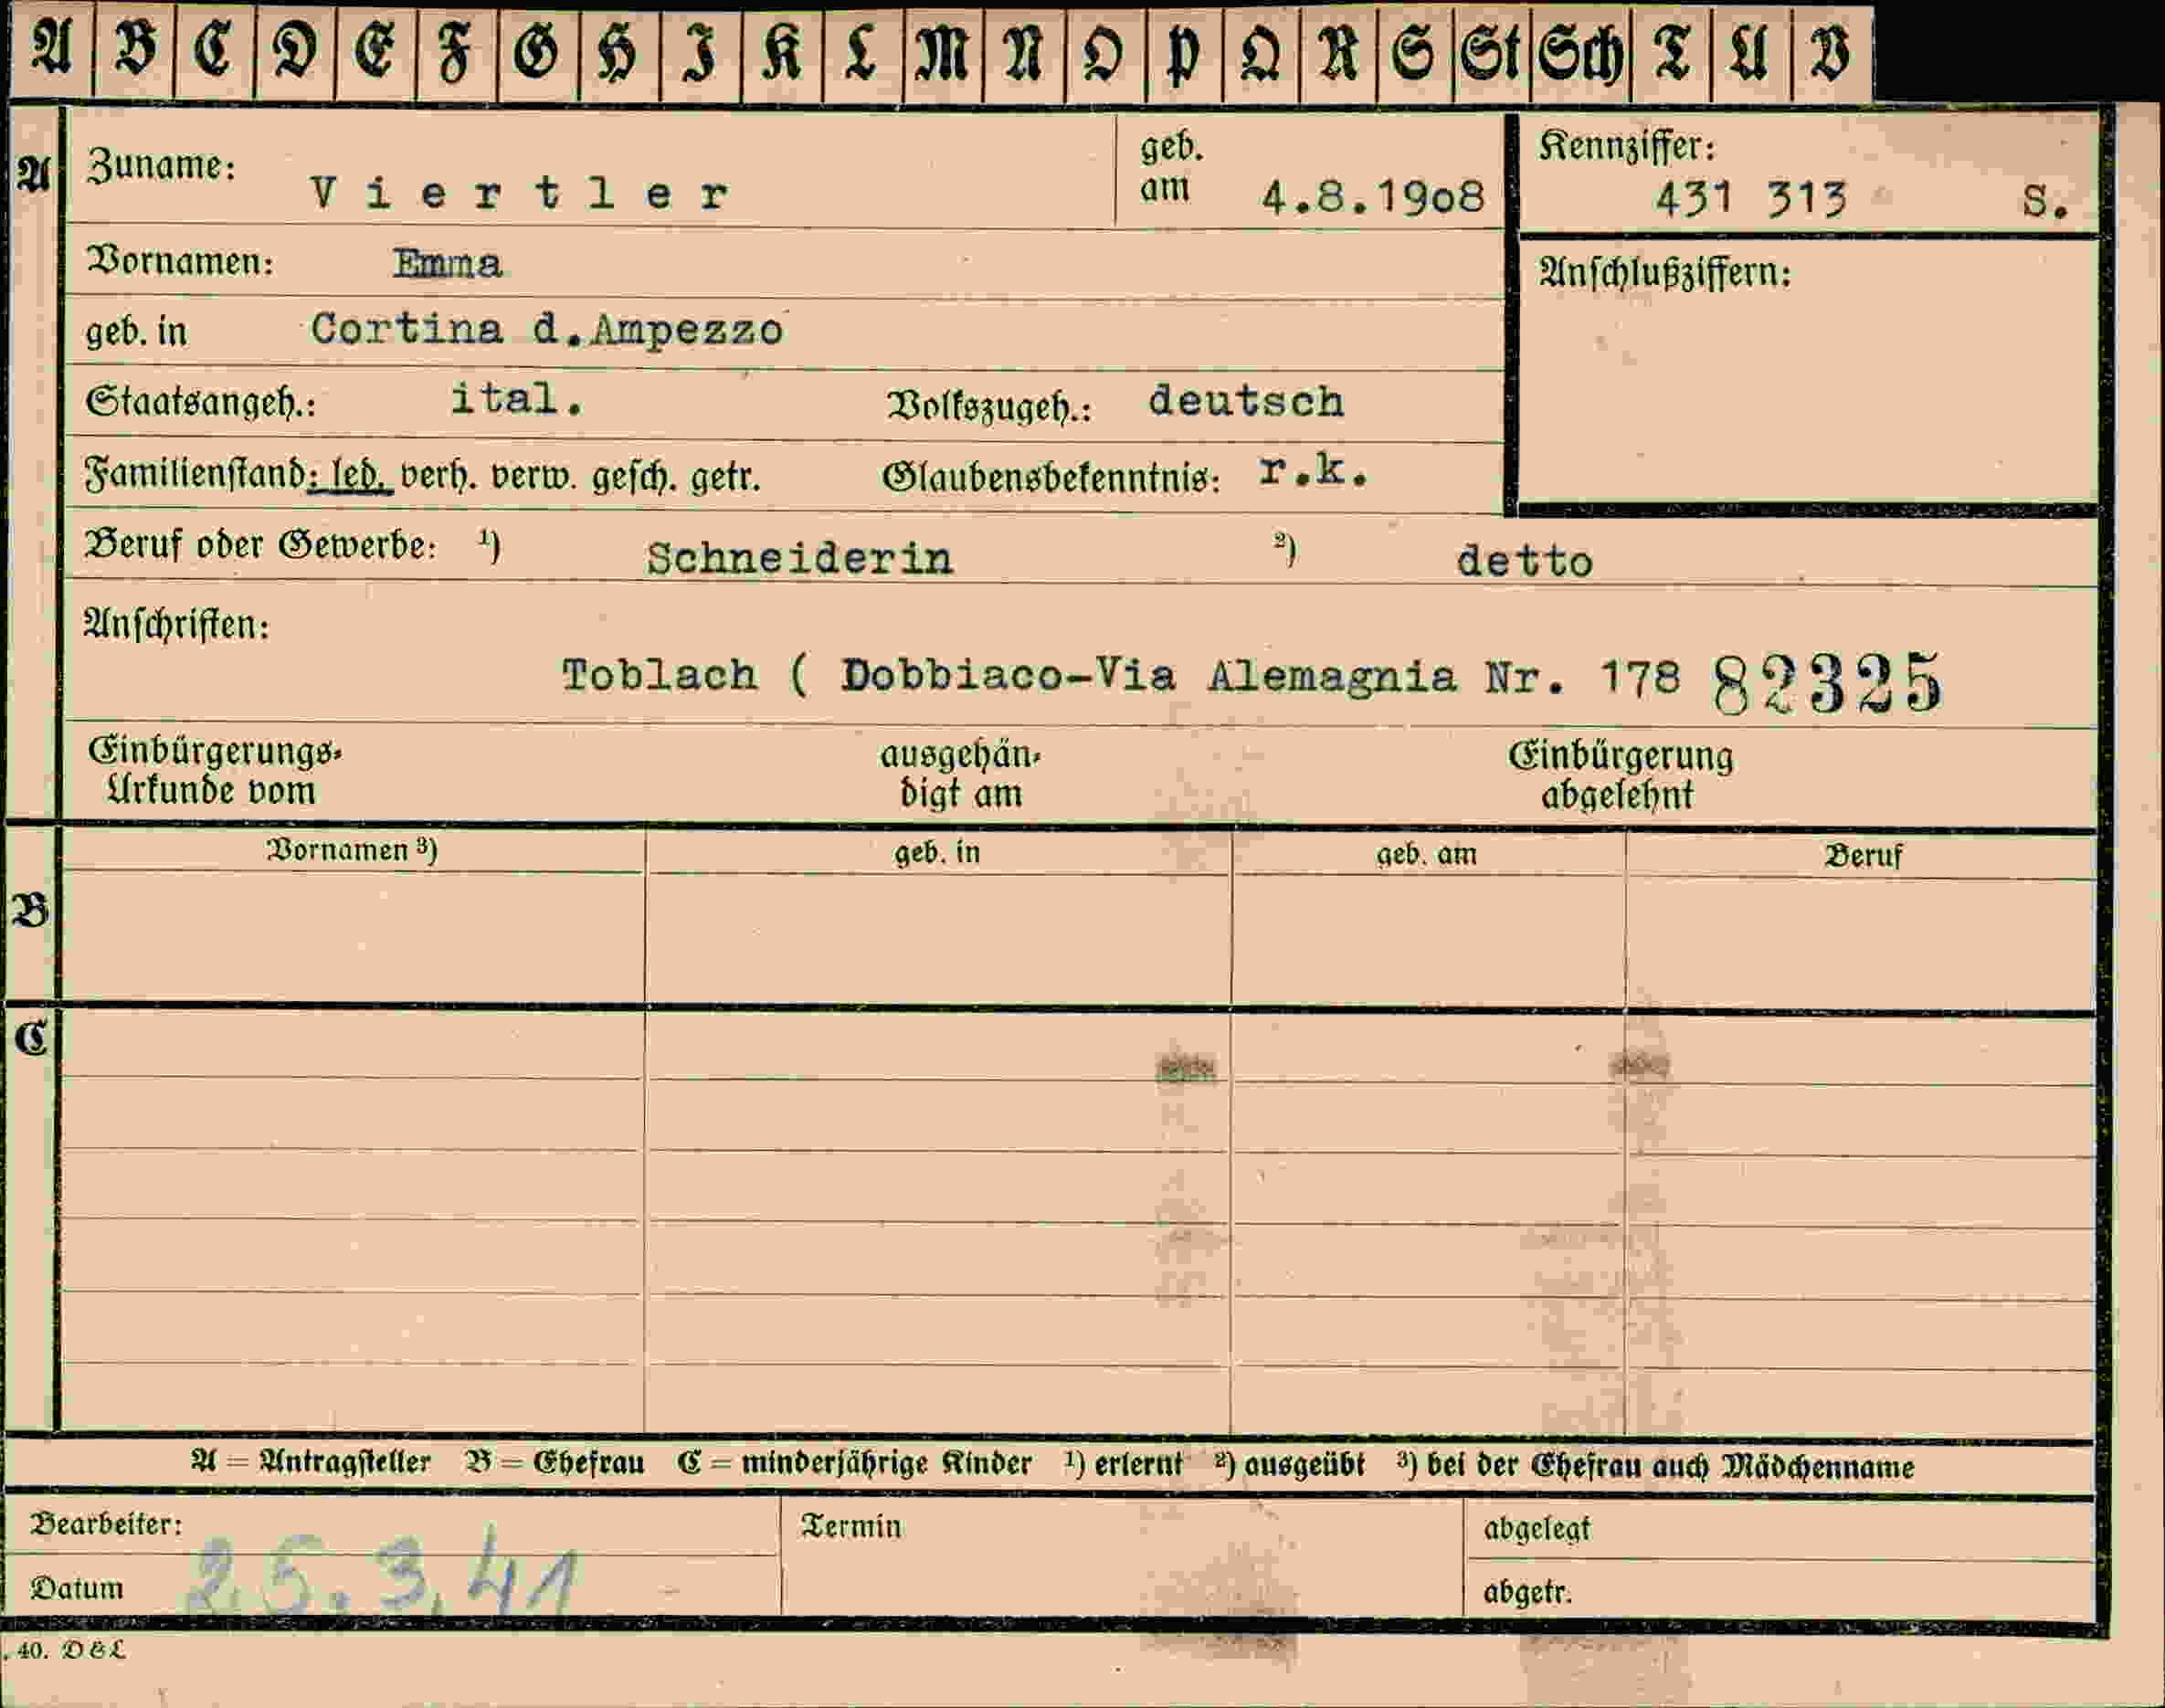 A B C D E F G H I K L M N O P Q R S St Sch T U V
A Zuname: Viertler geb. am 4.8.1908 Kennziffer: 431 313 S.
Vornamen: Emma Anschlußziffern:
geb. in Cortina d.Ampezzo
Staatsangeh.: ital. Volkszugeh.: deutsch
Familienstand: led. verh. verw. gesch. getr. Glaubensbekenntnis: r.k.
Beruf oder Gewerbe: ¹) Schneiderin ²) detto
Anschriften:
Toblach ( Dobbiaco-Via Alemagnia Nr. 178 82325
Einbürgerungs- ausgehän- Einbürgerung
Urkunde vom digt am abgelehnt
Vornamen ³) geb. in geb. am Beruf
B
C
A = Antragsteller B = Ehefrau C = minderjährige Kinder ¹) erlernt ²) ausgeübt ³) bei der Ehefrau auch Mädchenname
Bearbeiter: Termin abgelegt
Datum 25.3.41 abgetr.
. 40. D&L